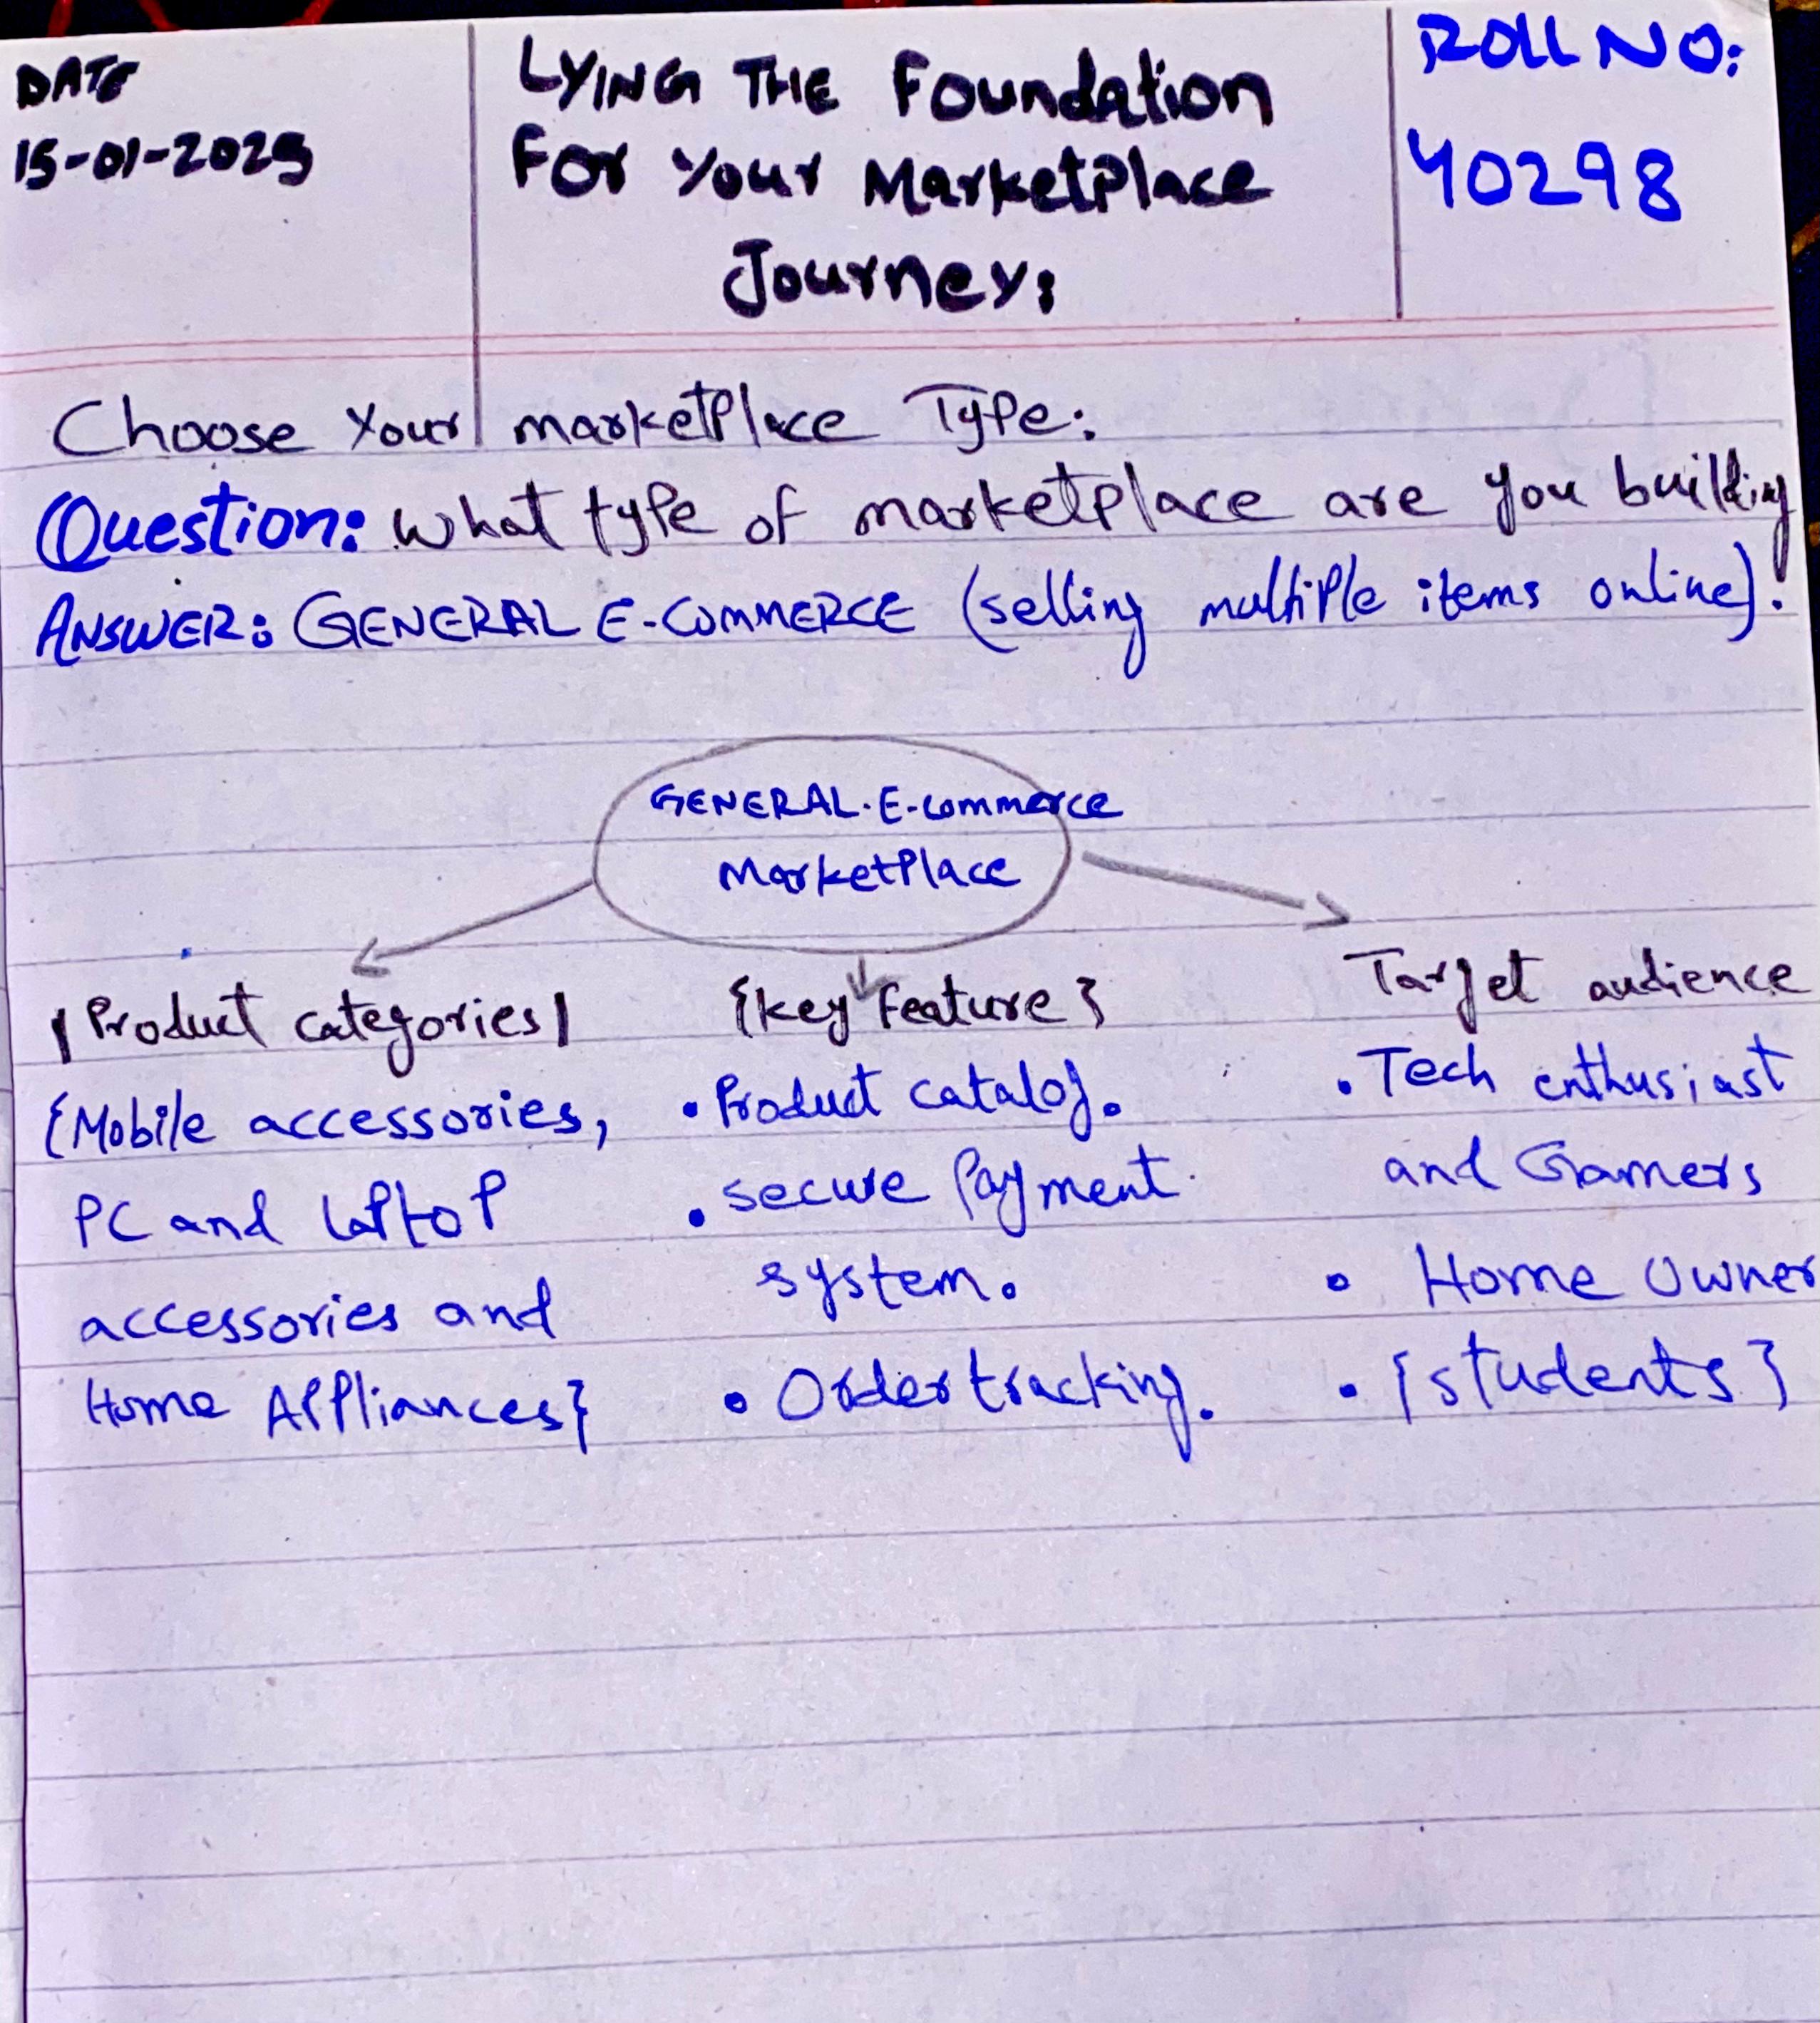 DATE
15-01-2025
LYING THE Foundation
For Your MarketPlace
Journey:
ROLL NO:
40298
Choose Your marketPlace Type:
Question: What type of marketplace are you building
ANSWER: GENERAL E-COMMERCE (selling multiple items online).
GENERAL E-commerce
MarketPlace
|Product categories|
{Mobile accessories,
PC and laptop
accessories and
Home Appliances}
{key Feature}
• Product catalog.
• secure Payment
system.
• Order tracking.
Target audience
• Tech enthusiast
and Gamers
• Home Owner
• {students}